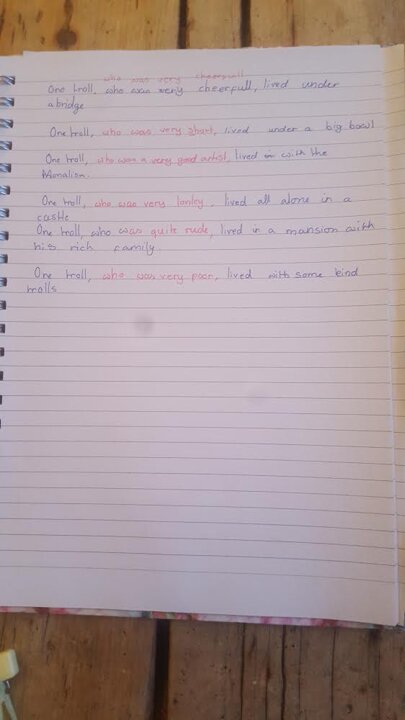 who was very cheerfull
One troll, who was veriy cheerfull, lived under
a bridge
One troll, who was very short, lived under a big bowl
One troll, who was a very good artist, lived in with the
Monalisa.
One troll, who was very lonley, lived all alone in a
castle
One troll, who was quite rude, lived in a mansion with
his rich family.
One troll, who was very poor, lived with some kind
trolls